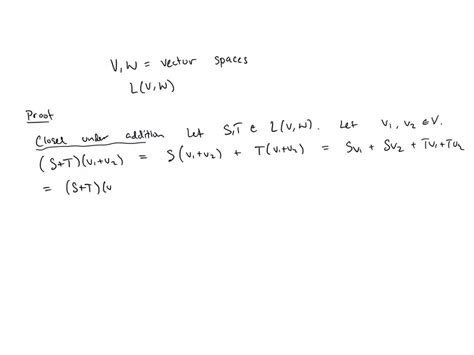 V, W = vector spaces
L(V,W)
Proof
Closed under addition Let S,T ∈ L(V,W). Let v₁, v₂ ∈ V.
(S+T)(v₁+v₂) = S(v₁+v₂) + T(v₁+v₂) = Sv₁ + Sv₂ + Tv₁+Tv₂
= (S+T)(v